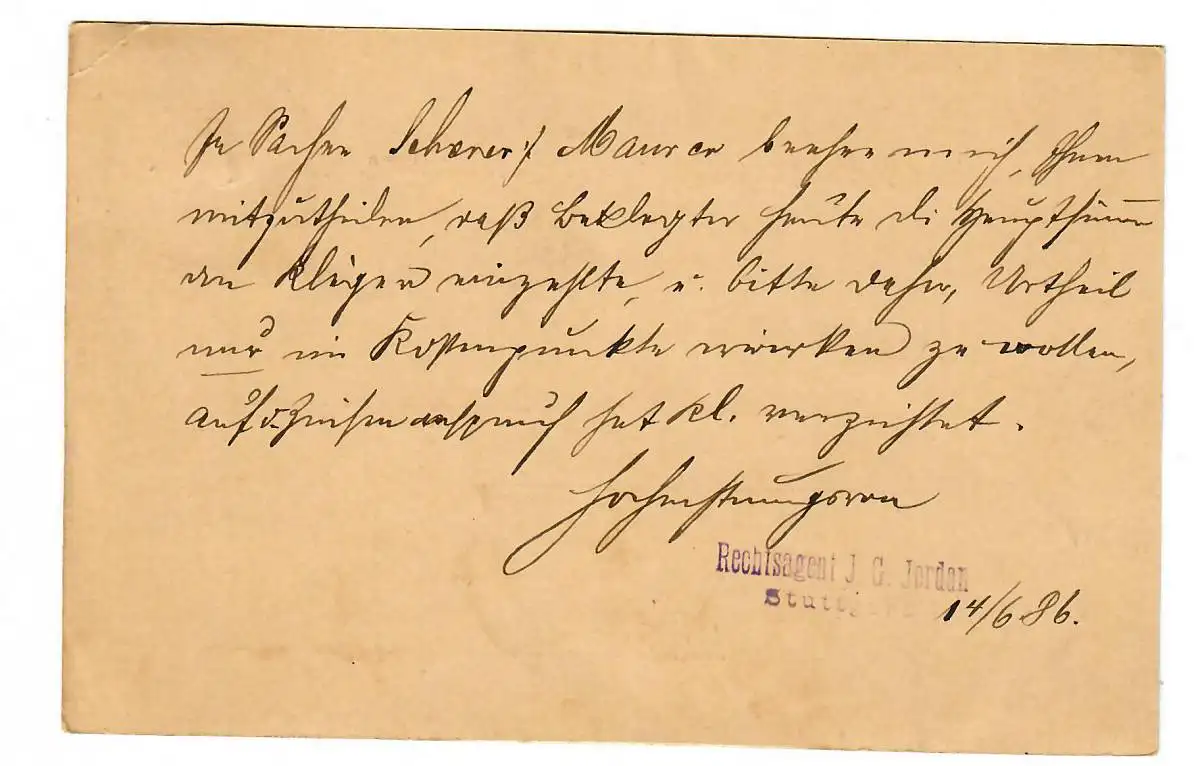 In Sachen Scherer ·/· Maurer beehre mich, Ihnen
mitzutheilen, daß Beklagter heute die Hauptsumme
an Kläger einzahlte, u. bitte daher, Urtheil
nur im Kostenpunkte erwirken zu wollen,
auf d. Zinsenanspruch hat Kl. verzichtet.
Hochachtungsvoll
Rechtsagent J. G. Jordan
Stuttgart
14/6 86.